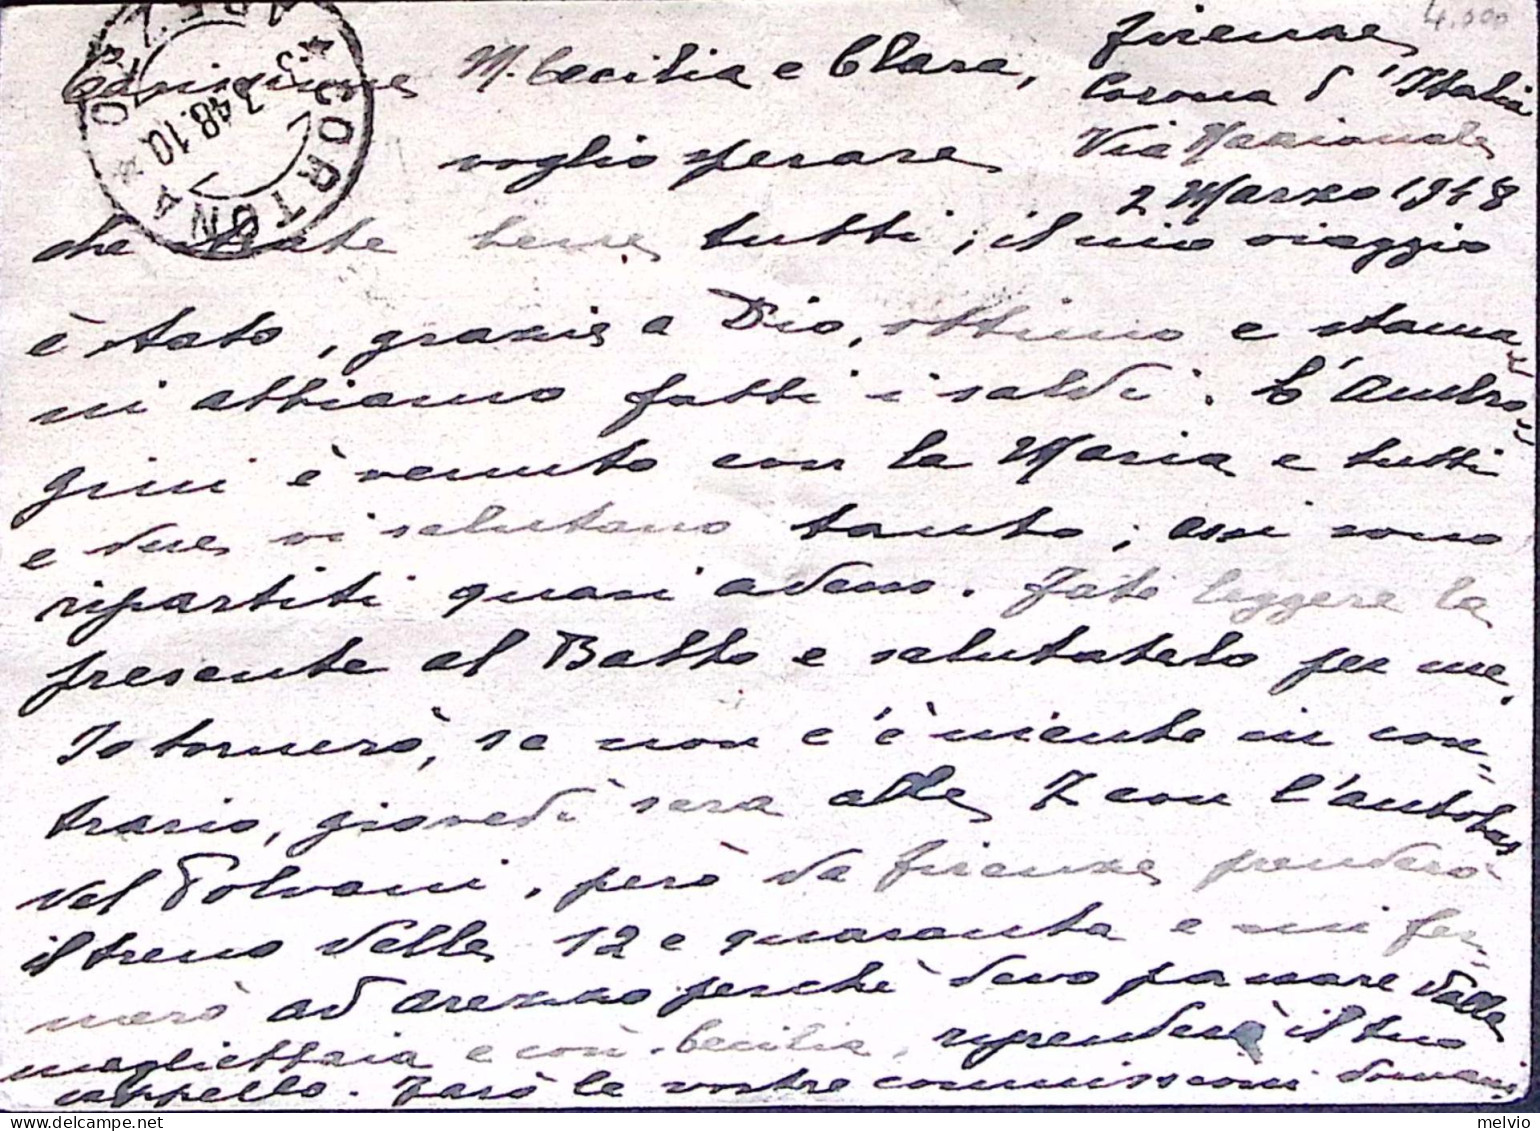 4.000
Firenze
Corona d'Italia
Via Nazionale
2 Marzo 1948
★ CORTONA ★ AREZZO
3.3.48.10
Carissime M. Cecilia e Clara,
voglio sperare
che state bene tutti, il mio viaggio
è stato, grazie a Dio, ottimo e stama-
ni abbiamo fatti i saldi. L'Ambro-
gini è venuto con la Maria e tutti
e due vi salutano tanto; essi sono
ripartiti quasi adesso. Fate leggere la
presente al Batto e salutatelo per me.
Io tornerò, se non c'è niente in con-
trario, giovedì sera alle 7 con l'autobus
del Polvani, però da Firenze prenderò
il treno delle 12 e quaranta e mi fer-
merò ad Arezzo perchè devo passare dalla
magliettaia e così Cecilia, riprenderà il tuo
cappello. Farò le vostre commissioni domani
melvio